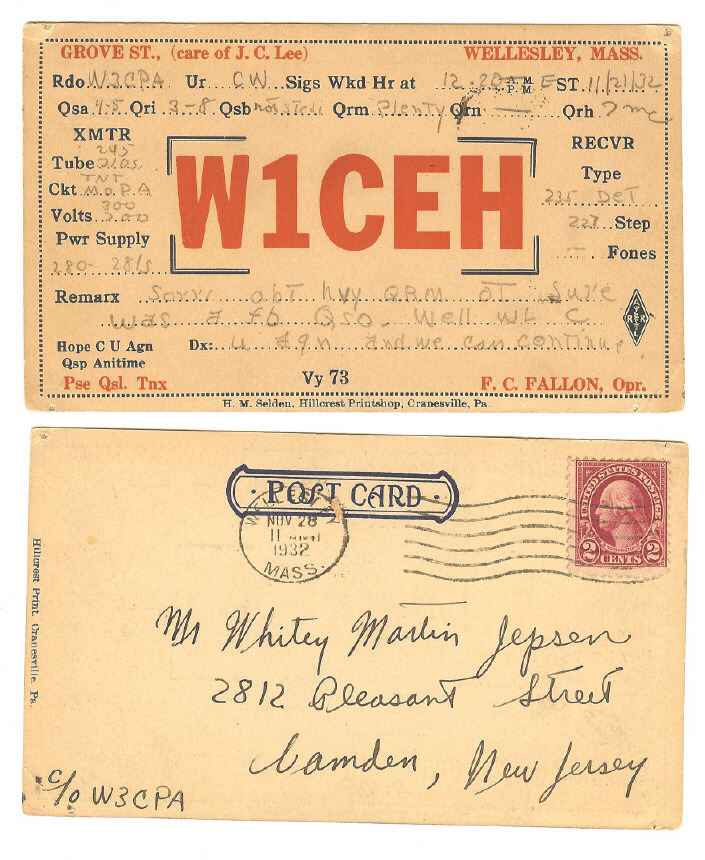 GROVE ST., (care of J. C. Lee) WELLESLEY, MASS.
Rdo W3CPA Ur CW Sigs Wkd Hr at 12.20 A M P M EST 11/21/32
Qsa 4-5 Qri 3-8 Qsb Qrm Plenty Qrn — Qrh 7mc
XMTR
245
Tube 210s
TNT
Ckt MOPA
300
Volts
Pwr Supply
280- 281s
W1CEH
RECVR
Type
235 DeT
227 Step
Fones
Remarx Sorri abt hvy QRM OT Sure
was a fb Qso. Well wL C
Hope C U Agn Dx: u agn and we can continue
Qsp Anitime
Pse Qsl. Tnx Vy 73 F. C. FALLON, Opr.
A R R L
H. M. Selden, Hillcrest Printshop, Cranesville, Pa.
POST CARD
NOV 28
11 AM
1932
MASS.
UNITED STATES POSTAGE
2 CENTS 2
Hillcrest Print, Cranesville, Pa.
Mr Whitey Martin Jepsen
2812 Pleasant Street
Camden, New Jersey
c/o W3CPA